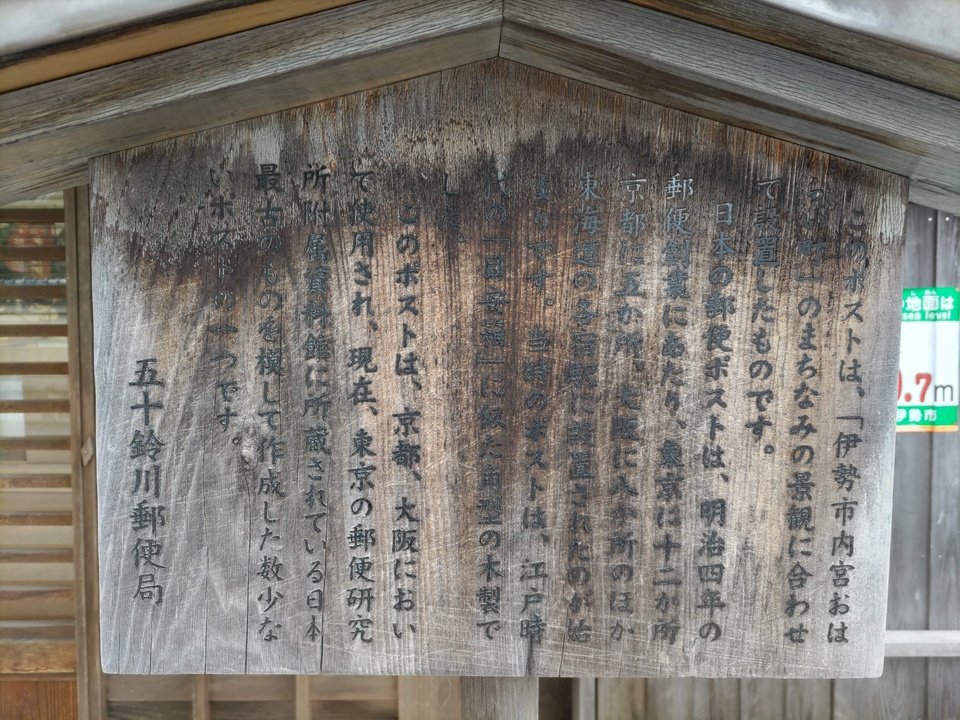 このポストは、「伊勢市内宮おは
らい町」のまちなみの景観に合わせ
て設置したものです。
日本の郵便ポストは、明治四年の
郵便創業にあたり、東京に十二か所
京都に五か所、大阪に八か所のほか
東海道の各宿駅に設置されたのが始
まりです。当時のポストは、江戸時
代の「目安箱」に似た角型の木製で
した。
このポストは、京都、大阪におい
て使用され、現在、東京の郵便研究
所附属資料館に所蔵されている日本
最古のものを模して作成した数少な
いポストの一つです。
五十鈴川郵便局
地面は
sea level
.7m
伊勢市